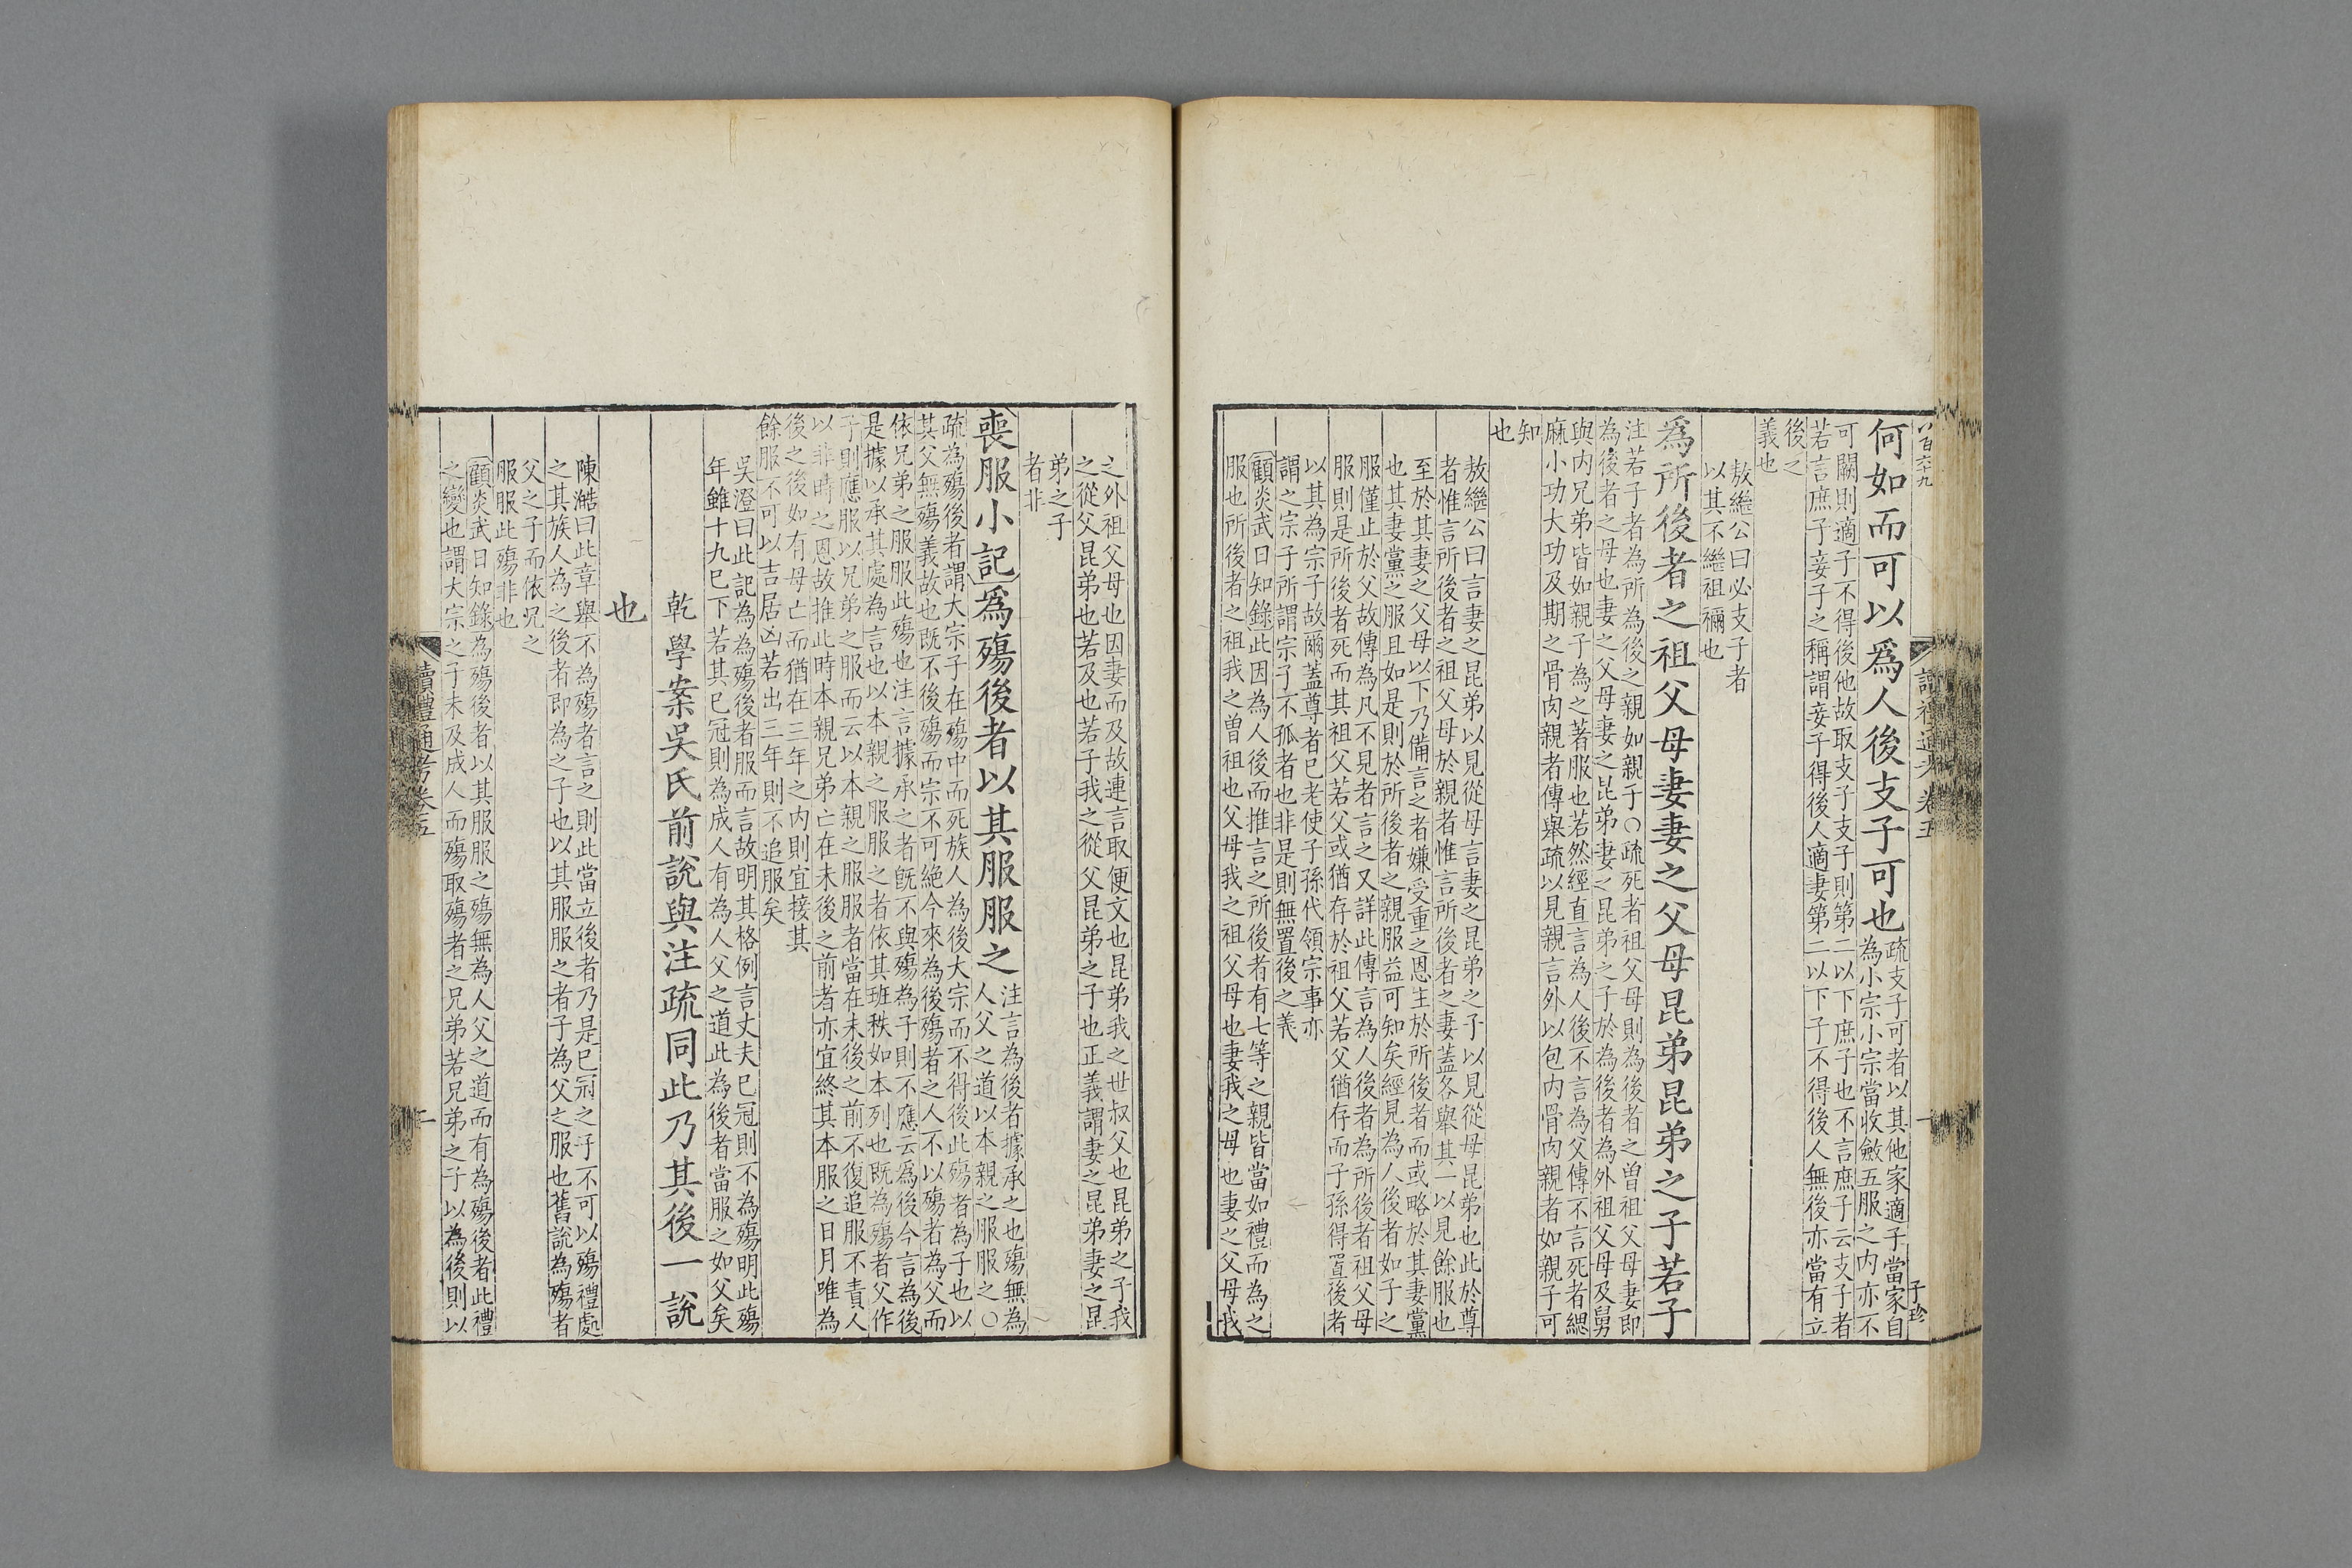 八百六十九
讀禮通考卷五
一
子珍
何如而可以爲人後支子可也
疏支子可者以其他家適子當家自
為小宗小宗當收斂五服之內亦不
可闕則適子不得後他故取支子支子則第二以下庶子也不言庶子云支子者
若言庶子妾子之稱謂妾子得後人適妻第二以下子不得後人無後亦當有立
後之
義也
敖繼公曰必支子者
以其不繼祖禰也
爲所後者之祖父母妻妻之父母昆弟昆弟之子若子
注若子者為所為後之親如親子○疏死者祖父母則為後者之曾祖父母妻即
為後者之母也妻之父母妻之昆弟妻之昆弟之子於為後者為外祖父母及舅
與內兄弟皆如親子為之著服也若然經直言為人後不言為父傳不言死者緦
麻小功大功及期之骨肉親者傳舉疏以見親言外以包內骨肉親者如親子可
知
也
敖繼公曰言妻之昆弟以見從母言妻之昆弟之子以見從母昆弟也此於尊
者惟言所後者之祖父母於親者惟言所後者之妻蓋各舉其一以見餘服也
至於其妻之父母以下乃備言之者嫌受重之恩主於所後者而或略於其妻黨
也其妻黨之服且如是則於所後者之親服益可知矣經見為人後者如子之
服僅止於父故傳為凡不見者言之又詳此傳言為人後者為所後者祖父母
服則是所後者死而其祖父若父或猶存於祖父若父猶存而子孫得置後者
以其為宗子故爾蓋尊者已老使子孫代領宗事亦
謂之宗子所謂宗子不孤者也非是則無置後之義
顧炎武日知錄此因為人後而推言之所後者有七等之親皆當如禮而為之
服也所後者之祖我之曾祖也父母我之祖父母也妻我之母也妻之父母我
之外祖父母也因妻而及故連言取便文也昆弟我之世叔父也昆弟之子我
之從父昆弟也若及也若子我之從父昆弟之子也正義謂妻之昆弟妻之昆
弟之子
者非
喪服小記爲殤後者以其服服之
注言為後者據承之也殤無為
人父之道以本親之服服之○
疏為殤後者謂大宗子在殤中而死族人為後大宗而不得後此殤者為子也以
其父無殤義故也既不後殤而宗不可絕今來為後殤者之人不以殤者為父而
依兄弟之服服此殤也注言據承之者旣不與殤為子則不應云爲後今言為後
是據以承其處為言也以本親之服服之者依其班秩如本列也既為殤者父作
子則應服以兄弟之服而云以本親之服服者當在未後之前不復追服不責人
以非時之恩故推此時本親兄弟亡在未後之前者亦宜終其本服之日月唯為
後之後如有母亡而猶在三年之內則宜接其
餘服不可以吉居凶若出三年則不追服矣
吳澄曰此記為為殤後者服而言故明其格例言丈夫已冠則不為殤明此殤
年雖十九已下若其已冠則為成人有為人父之道此為後者當服之如父矣
乾學案吳氏前說與注疏同此乃其後一說
也
陳澔曰此章舉不為殤者言之則此當立後者乃是已冠之子不可以殤禮處
之其族人為之後者即為之子也以其服服之者子為父之服也舊說為殤者
父之子而依兄之
服服此殤非也
顧炎武日知錄為殤後者以其服服之殤無為人父之道而有為殤後者此禮
之變也謂大宗之子未及成人而殤取殤者之兄弟若兄弟之子以為後則以
讀禮通考卷五
二